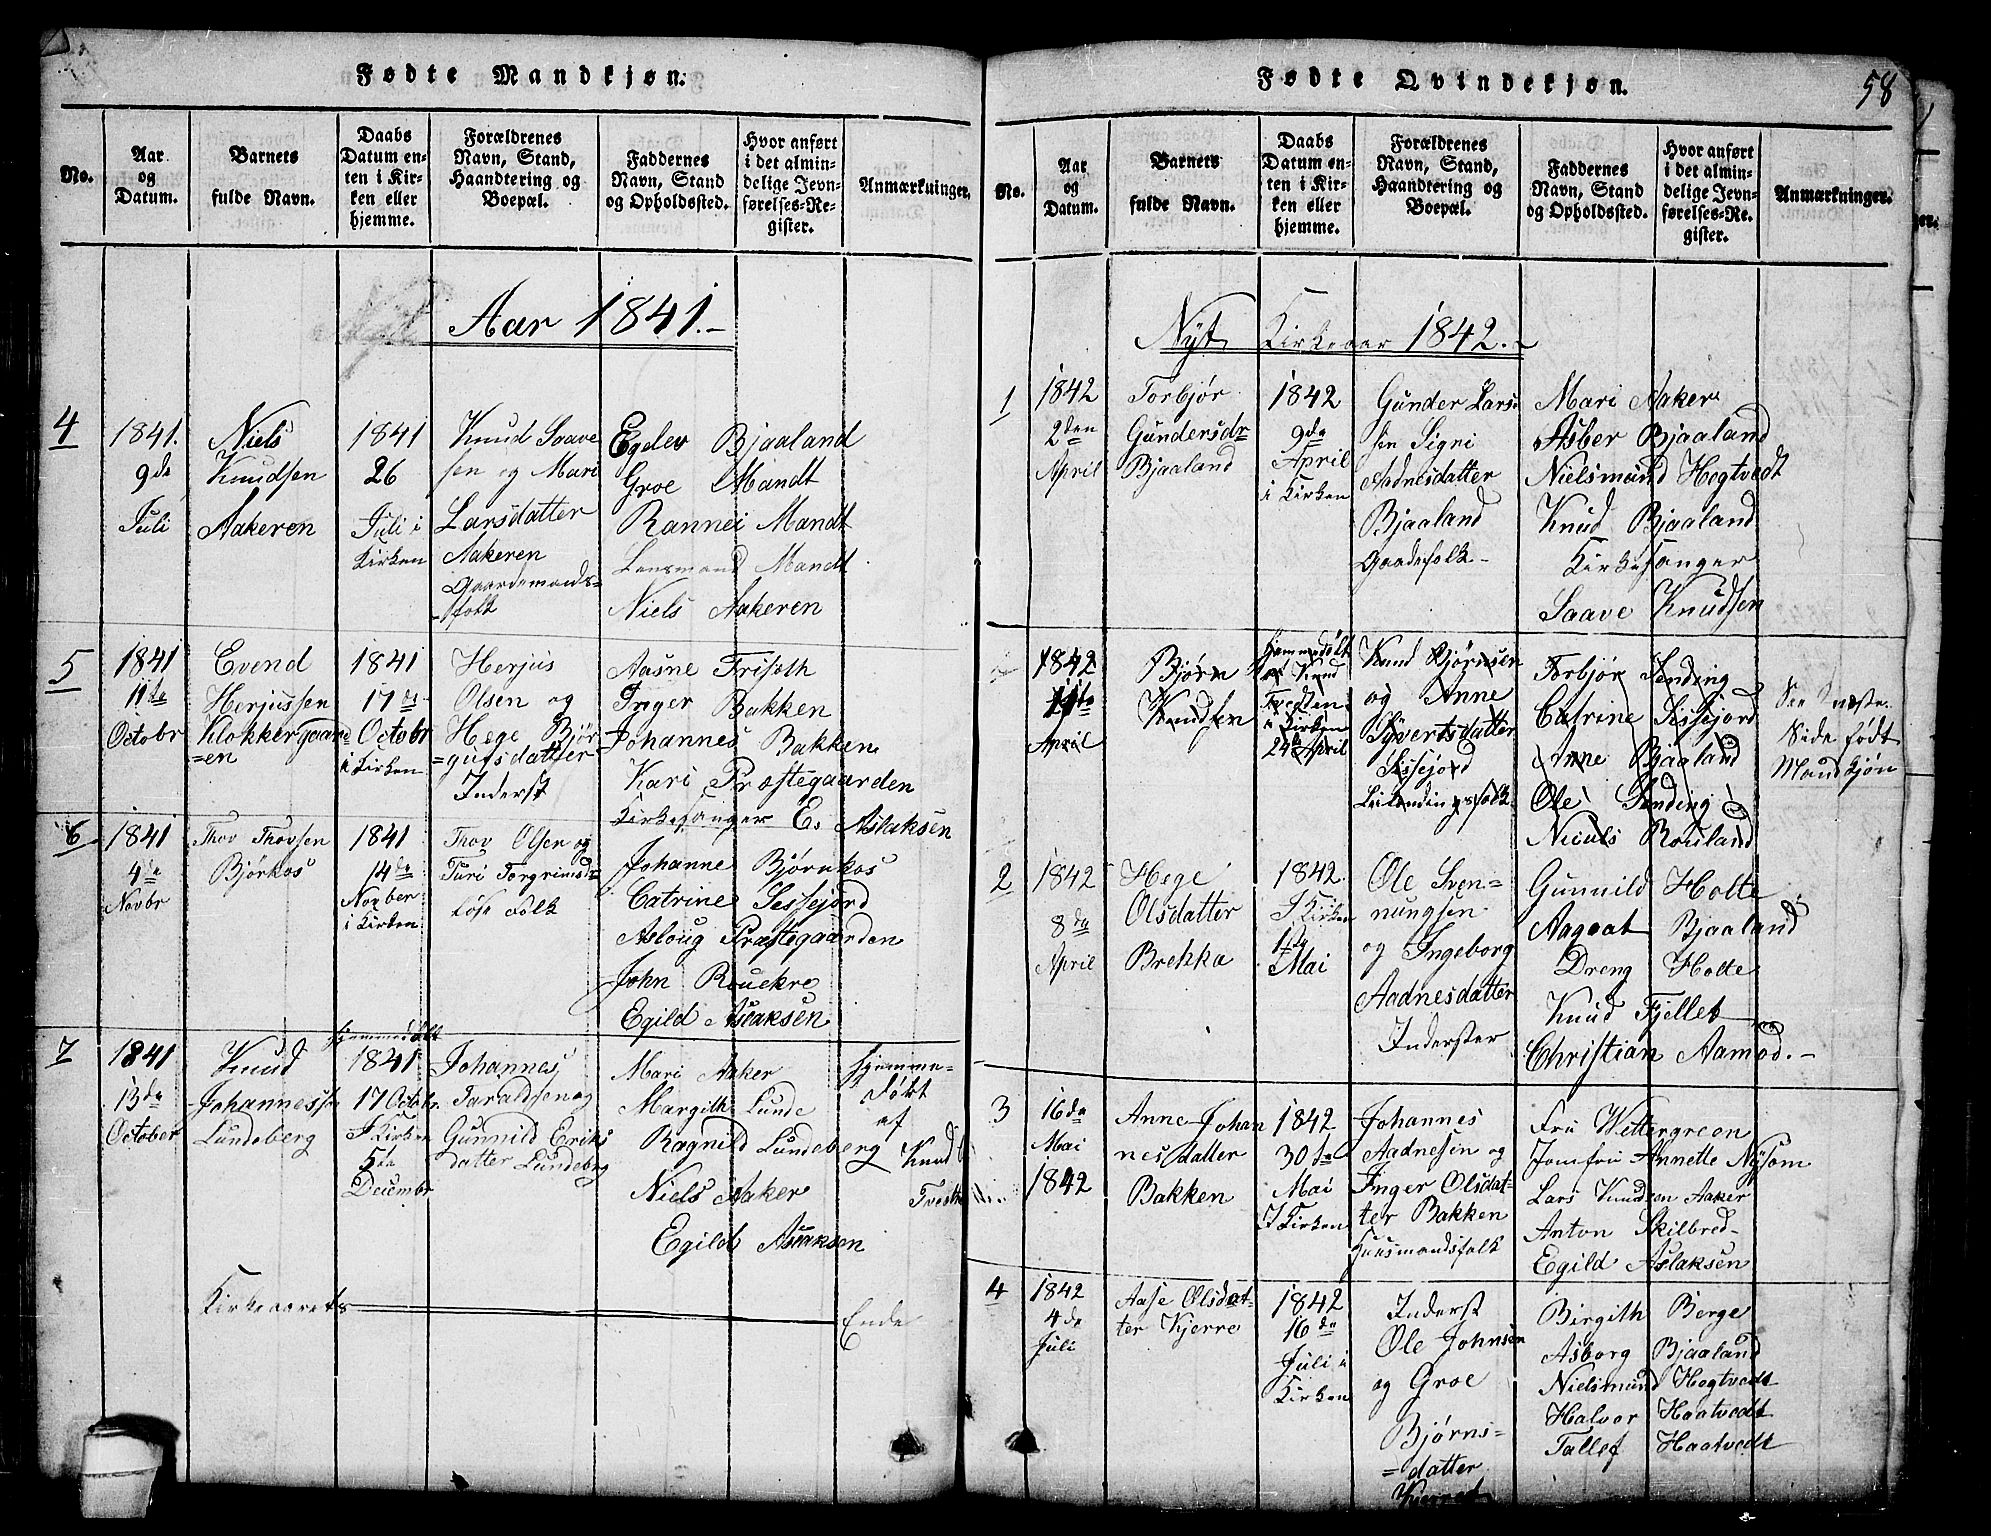 Fødte Mandkjøn.
No.
Aar
og
Datum.
Barnets
fulde Navn.
Daabs
Datum en-
ten i Kir-
ken eller
hjemme.
Forældrenes
Navn, Stand,
Haandtering og
Boepæl.
Faddernes
Navn, Stand
og Opholdssted.
Hvor anført
i det almin-
delige Jevn-
førelses-Re-
gister.
Anmærkninger.
Aar 1841.-
4
1841.
9de
Juli
Niels
Knudsen
Aakeren
1841
26
Juli i
Kirken
Knud Saave
sen og Mari
Larsdatter
Aakeren
Gaardemands-
folk
Egelev Bjaaland
Groe Mandt
Rannei Mandt
Lensmand Mandt
Niels Aakeren
5
1841
11te
Octobr
Evend
Herjussen
Klokkergaard
=en
1841
17de
Octobr
i Kirken
Herjus
Olsen og
Hege Bjør
=gufsdatter
Inderst
Aasne Trisoth
Inger Bakken
Johannes Bakken
Kari Præstegaarden
Kirkesanger E. Aslaksen
6
1841
4de
Novbr
Thov Thovsen
Bjørkos
1841
14de
Novber
i Kirken
Thov Olsen og
Turi Torgrimsd=
Løse Folk
Johanne Bjørnkos
Catrine Sissejord
Asloug Præstegaarden
John Rouekre
Egild Aslaksen
7
1841
13de
October
Knud
Johannessen
Lundeberg
Hjemmedøbt
1841
17 Octobr.
I Kirken
5te
Decembr
Johannes
Taraldsen og
Gunnild Eriks
datter Lundeberg
Mari Aaker
Margith Lunde
Ragnild Lundeberg
Niels Aaker
Egild Aslaksen
Hjemme-
døbt
af
Knud
Kirkeaarets
Ende
Fødte Qvindekjøn.
58
No.
Aar
og
Datum.
Barnets
fulde Navn.
Daabs
Datum en-
ten i Kir-
ken eller
hjemme.
Forældrenes
Navn, Stand,
Haandtering og
Boepæl.
Faddernes
Navn, Stand
og Opholdssted.
Hvor anført
i det almin-
delige Jevn-
førelses-Re-
gister.
Anmærkninger.
Nyt Kirkeaar 1842.-
1
1842
2den
April
Torbjør
Gundersdr
Bjaaland
1842
9de
April
i Kirken
Gunder Lars
sen Signi
Aadnesdatter
Bjaaland
Gaadefolk-
Mari Aaker
Asber Bjaaland
Nielsmund Hegtvedt
Knud Bjaaland
Kirkesanger
Saave Knudsen
1842
11te
April
Bjørn
Knudsen
Hjemmedøbt
af Knud
Tvedten
i Kirken
24 April
Knud Bjørnsen
og Anne
Syvertsdatter
Sissejord
Leilendingsfolk
Torbjør Tending
Catrine Sissejord
Anne Bjaaland
Ole Tending
Niculs Rouland
See næste
Side født
Mandkjøn
2
1842
8de
April
Hege
Olsdatter
Brekka
1842.
I Kirken
1te
Mai
Ole Sven=
nungsen
og Ingeborg
Aadnesdatter
Inderster
Gunnild Holte
Aagoat Bjaaland
Dreng Holte
Knud Fjellet
Christian Aamod.-
3
16de
Mai
1842
Anne Johan
nesdatter
Bakken
1842
30te
Mai
I Kirken
Johannes
Aadnesen og
Inger Olsdat-
ter Bakken
Huusmandsfolk
Fru Wettergreen
Jomfru Annette Nysom
Lars Knudsen Aaker
Anton Skilbred-
Egild Aslaksen
4
1842
4de
Juli
Aase Olsdat-
ter Kjerre
1842
16de
Juli i
Kirken
Inderst
Ole Johnsen
og Groe
Bjørns=
=datter
Birgith Berge
Asborg Bjaaland
Nielsmund Hegtvedt
Halvor Haatvedt
Tallef Haatvedt